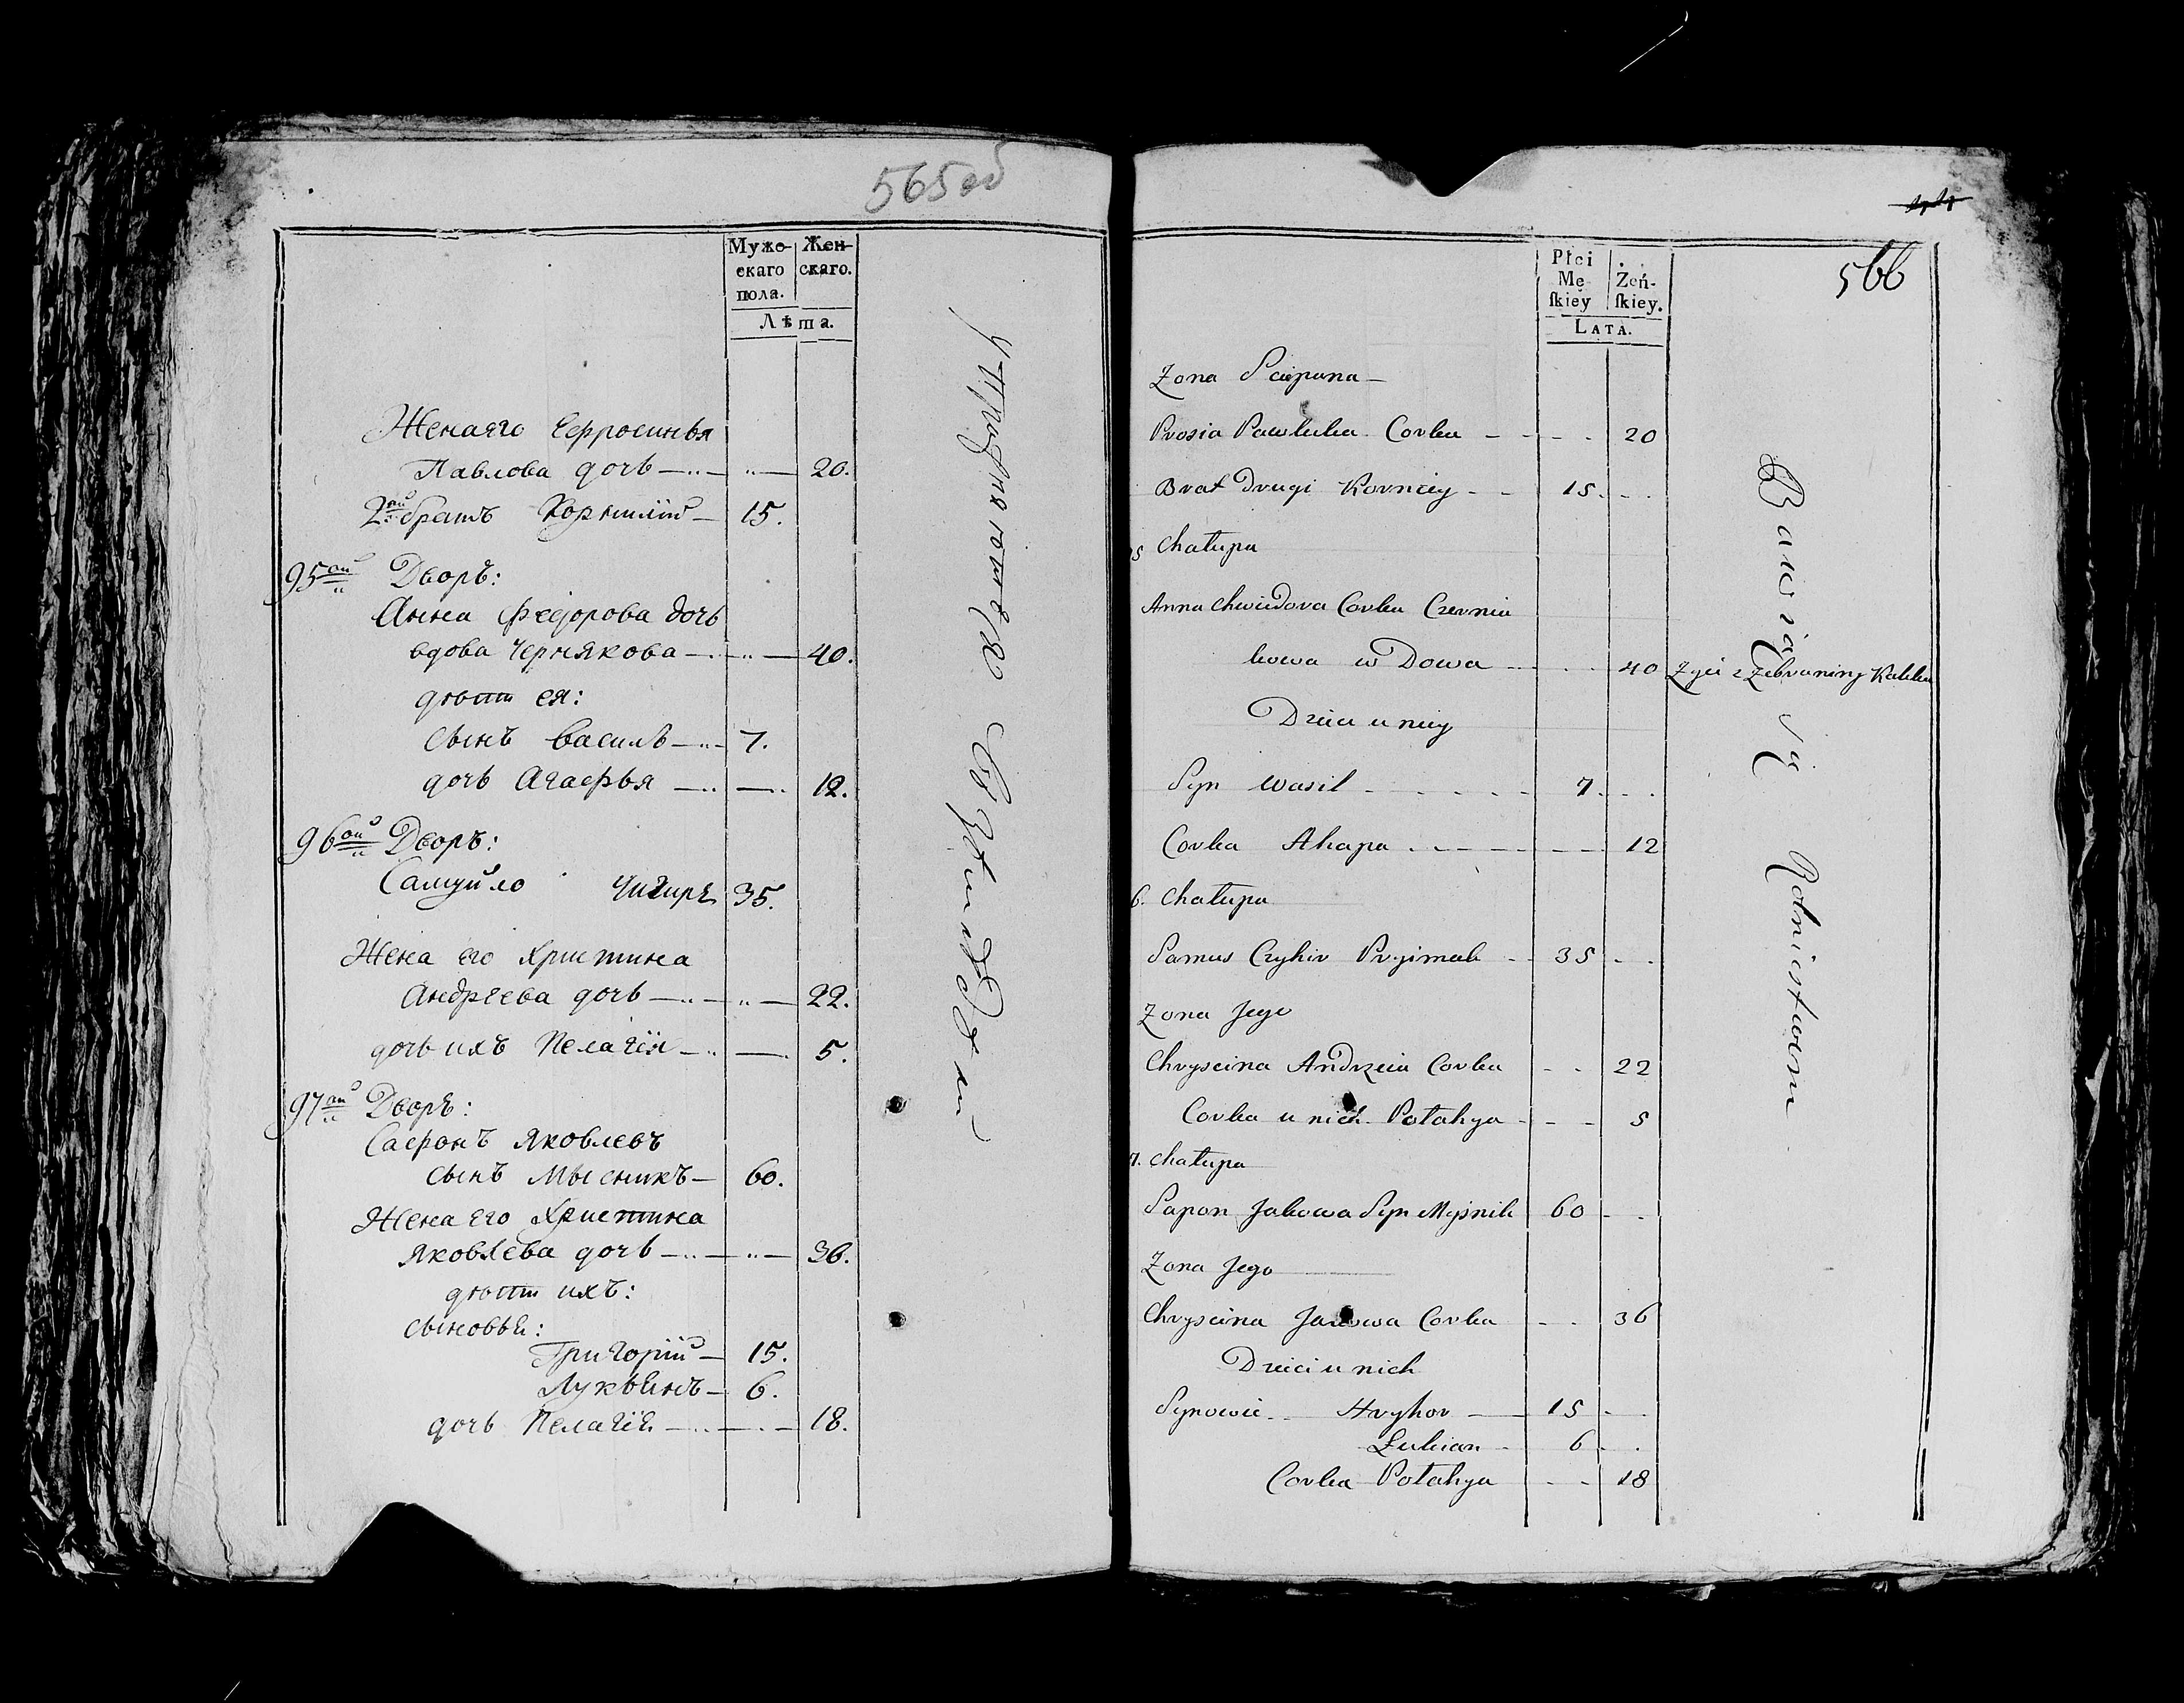 565 об
Муже-
скаго
пола.
Жен-
скаго.
Лѣта.
Жена его Ефросинья
Павлова дочь 20.
2ой братъ Корнилій 15.
95ой Дворъ:
Анна Федорова дочь
вдова Чернякова 40.
дѣти ея:
сынъ Василь 7.
дочь Агафья 12.
96ой Дворъ:
Самуйло Чигирь 35.
Жена его Христина
Андреева дочь 22.
дочь ихъ Пелагія 5.
97ой Дворъ:
Сафонъ Яковлевъ
сынъ Мысникъ 60.
Жена его Христина
Яковлева дочь 36.
дѣти ихъ:
сыновья:
Григорій 15.
Лукьянъ 6.
дочь Пелагія 18.
упражняются въ хлѣбопашествѣ
566
Płci
Mę-
ſkiey
Żeń-
ſkiey.
LATA.
Zona Sciepana
Prosia Pawluka Corka 20
Brat Drugi Korniey 15
5 Chałupa
Anna Chwiedora Corka Czernia
kowa w Dowa 40 Zyie z Zebraniny Kaleka
Dzieci u niey
Syn Wasil 7
Corka Ahapa 12
6. Chałupa
Samus Czyhir Pryimak 35
Zona Jego
Chryscina Andrzeia Corka 22
Corka u nich Połahya 5
7. Chałupa
Sapon Jakowa Syn Myśnik 60
Zona Jego
Chryscina Jakowa Corka 36
Dzieci u nich
Synowie Hryhor 15
Łukian 6
Corka Połahya 18
Bawią się Rolnictwem